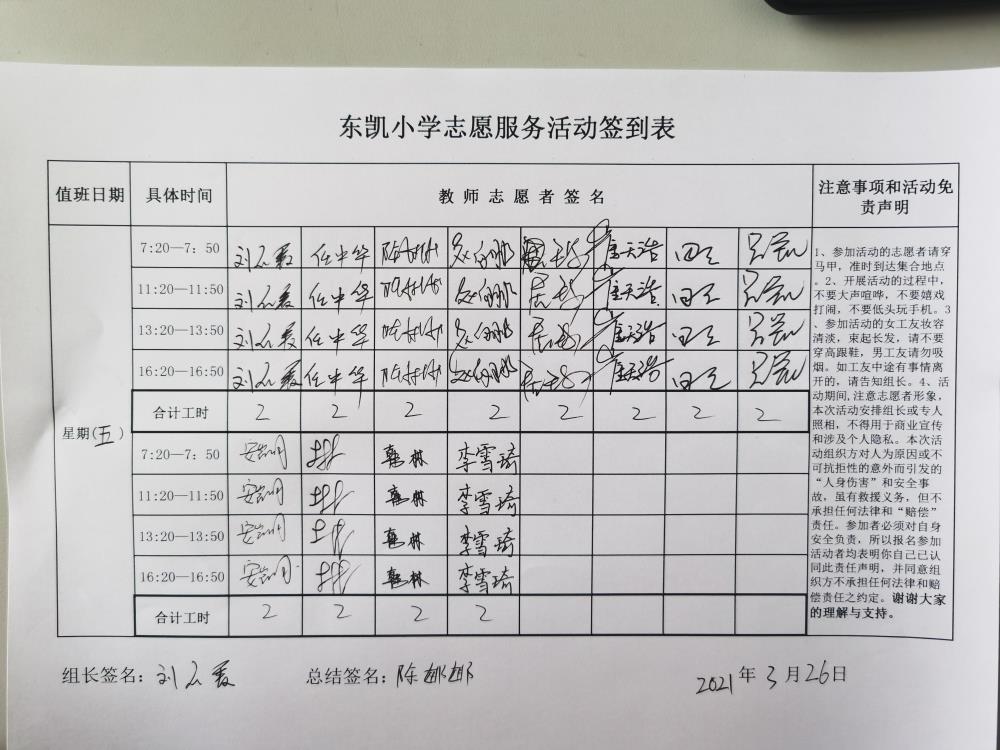 东凯小学志愿服务活动签到表
值班日期 具体时间 教师志愿者签名 注意事项和活动免责声明
星期(五)
7:20—7:50 任中华 田 
11:20—11:50 任中华 田
13:20—13:50 任中华 田
16:20—16:50 任中华 田
合计工时 2 2 2 2 2 2 2 2
7:20—7:50 林 李雪琦
11:20—11:50 林 李雪琦
13:20—13:50 林 李雪琦
16:20—16:50 林 李雪琦
合计工时 2 2 2 2
1、参加活动的志愿者请穿
马甲，准时到达集合地点
。2、开展活动的过程中，
不要大声喧哗，不要嬉戏
打闹，不要低头玩手机。3
、参加活动的女工友妆容
清淡，束起长发，请不要
穿高跟鞋，男工友请勿吸
烟。如工友中途有事情离
开的，请告知组长。4、活
动期间,注意志愿者形象，
本次活动安排组长或专人
照相，不得用于商业宣传
和涉及个人隐私。本次活
动组织方对人为原因或不
可抗拒性的意外而引发的
“人身伤害”和安全事
故，虽有救援义务，但不
承担任何法律和“赔偿”
责任。参加者必须对自身
安全负责，所以报名参加
活动者均表明你自己已认
同此责任声明，并同意组
织方不承担任何法律和赔
偿责任之约定。谢谢大家
的理解与支持。
组长签名： 总结签名：陈 2021年3月26日